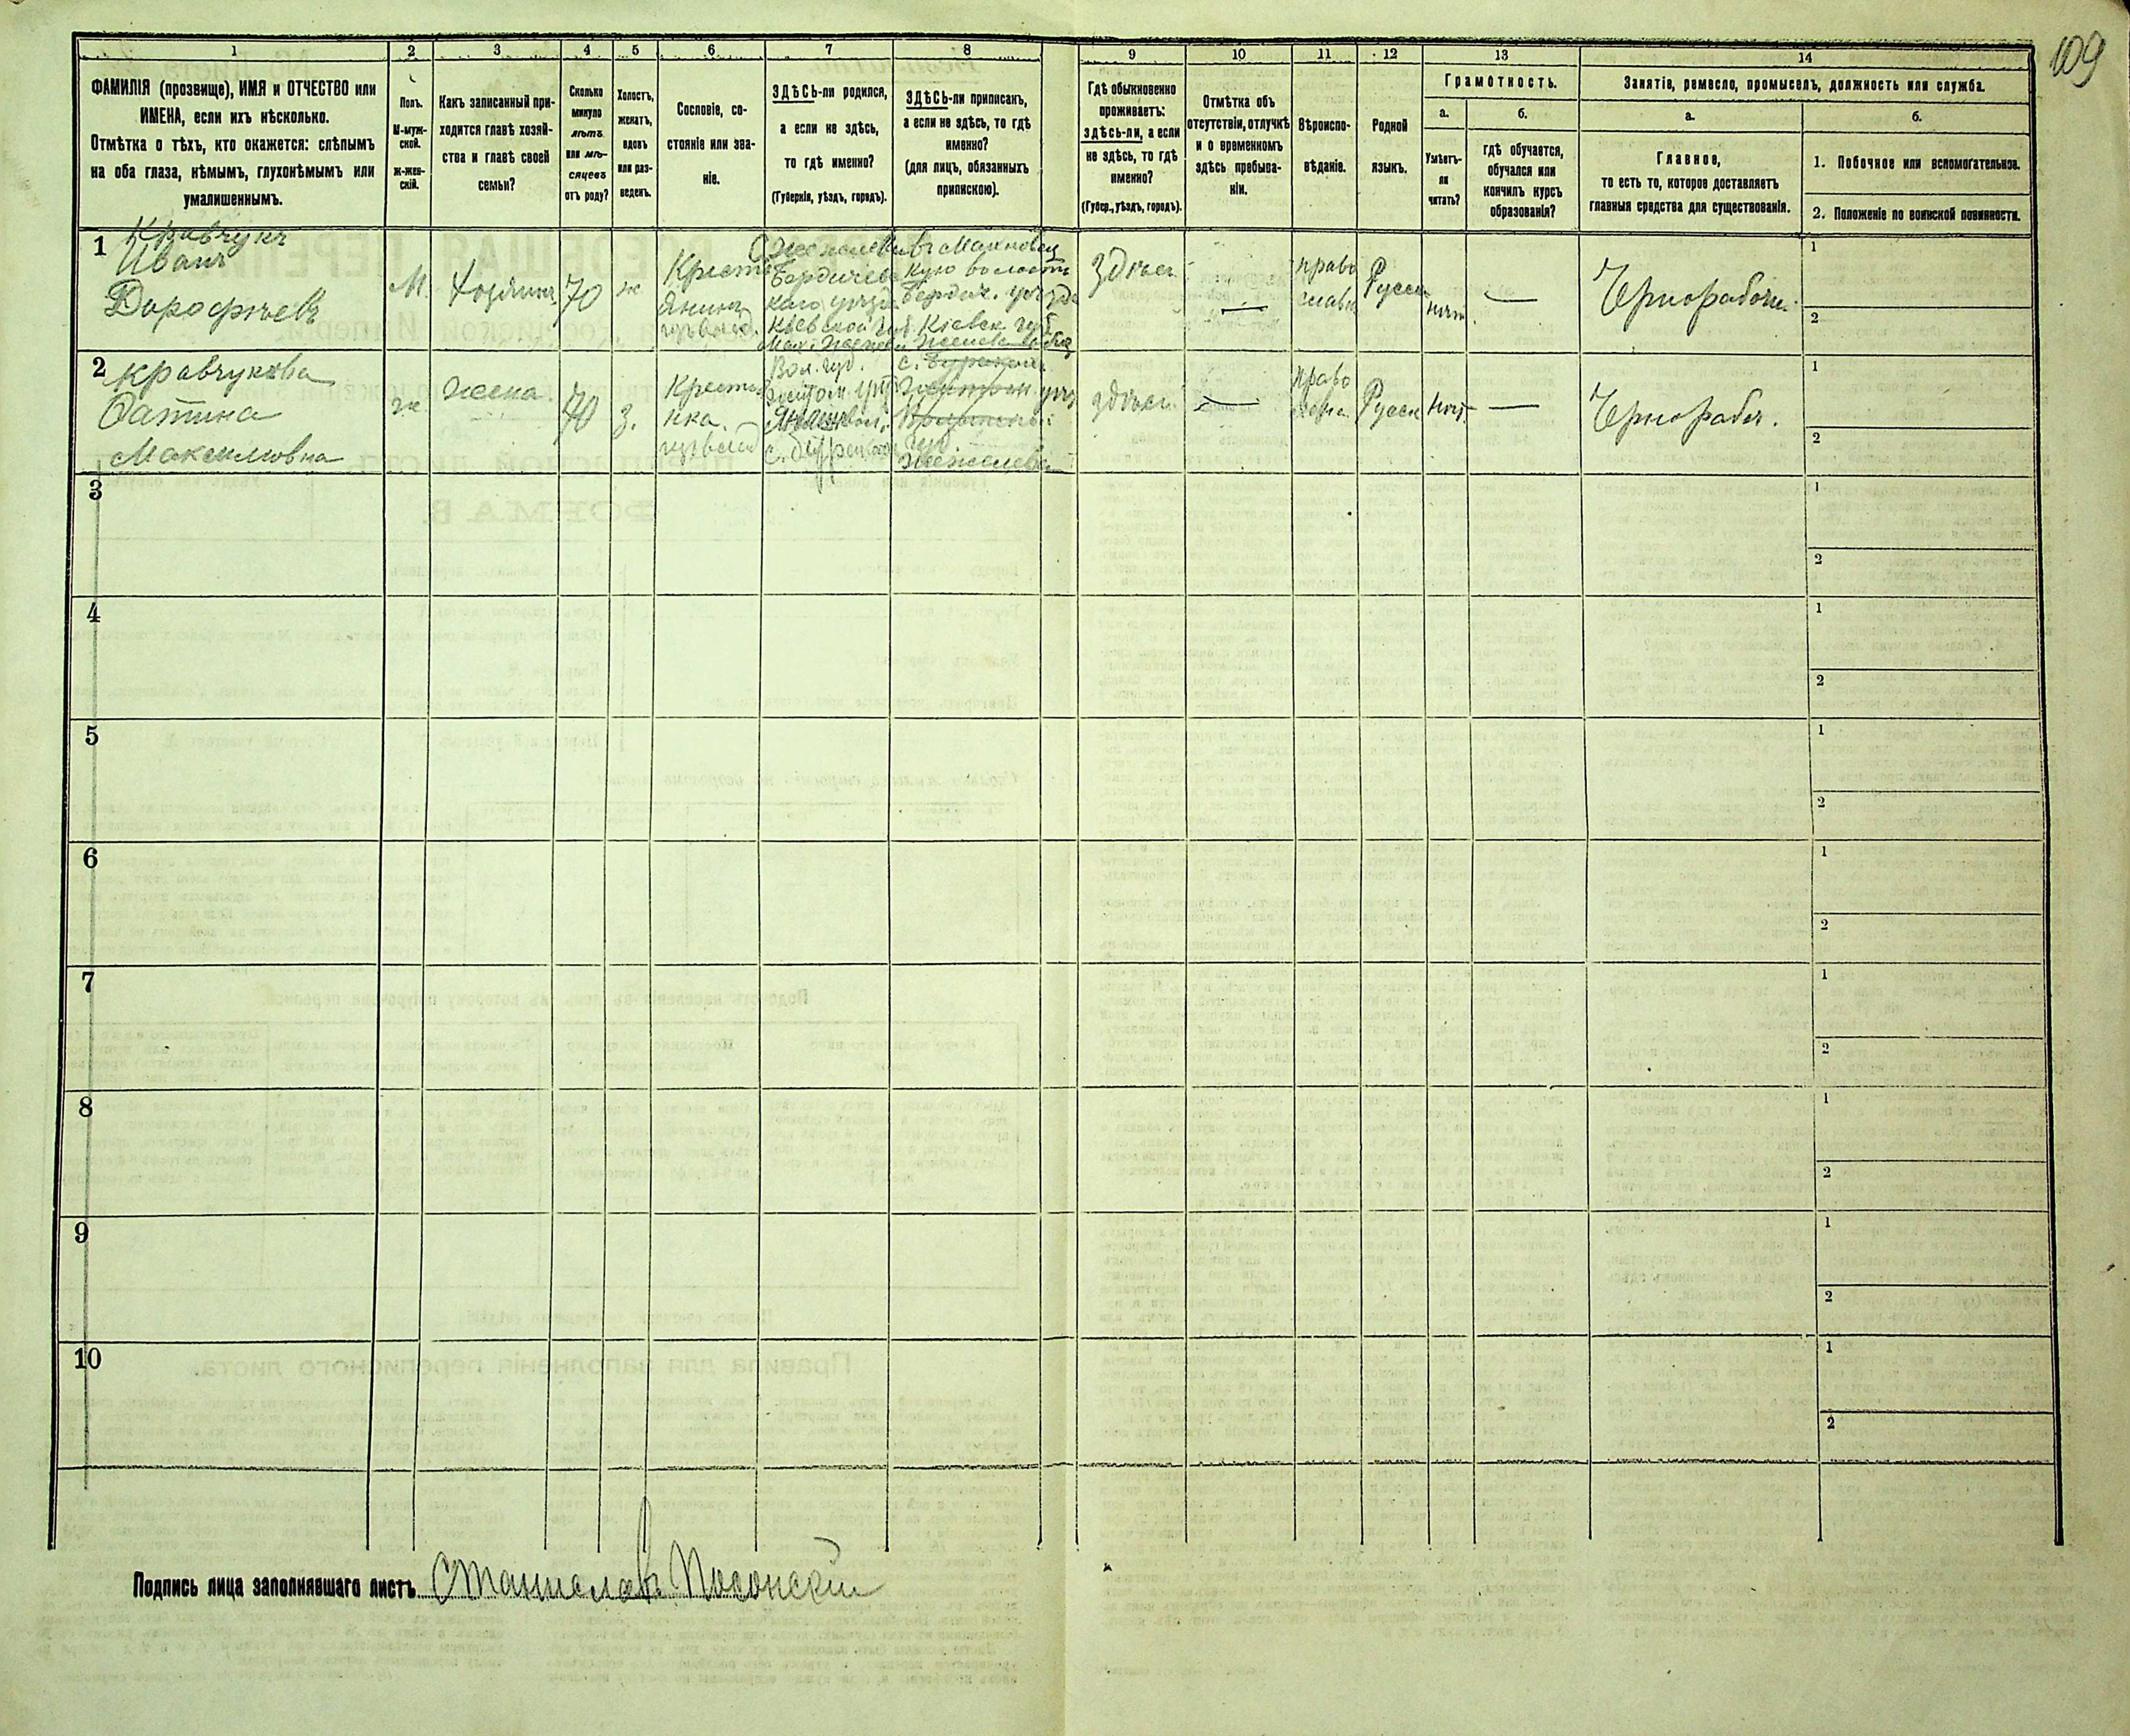 109
1
2
3
4
5
6
7
8
9
10
11
12
13
14
ФАМИЛІЯ (прозвище), ИМЯ и ОТЧЕСТВО или
ИМЕНА, если ихъ нѣсколько.
Отмѣтка о тѣхъ, кто окажется: слѣпымъ
на оба глаза, нѣмымъ, глухонѣмымъ или
умалишеннымъ.
Полъ.
М-муж-
ской.
Ж-жен-
скій.
Какъ записанный при-
ходится главѣ хозяй-
ства и главѣ своей
семьи?
Сколько
минуло
лѣтъ
или мѣ-
сяцевъ
отъ роду?
Холостъ,
женатъ,
вдовъ
или раз-
веденъ.
Сословіе, со-
стояніе или зва-
ніе.
ЗДѢСЬ-ли родился,
а если не здѣсь,
то гдѣ именно?
(Губернія, уѣздъ, городъ).
ЗДѢСЬ-ли приписанъ,
а если не здѣсь, то гдѣ
именно?
(для лицъ, обязанныхъ
припискою).
Гдѣ обыкновенно
проживаетъ:
здѣсь-ли, а если
не здѣсь, то гдѣ
именно?
(Губер., уѣздъ, городъ).
Отмѣтка объ
отсутствіи, отлучкѣ
и о временномъ
здѣсь пребыва-
ніи.
Вѣроиспо-
вѣданіе.
Родной
языкъ.
Грамотность.
а.
Умѣетъ-
ли
читать?
б.
гдѣ обучается,
обучался или
кончилъ курсъ
образованія?
Занятіе, ремесло, промыселъ, должность или служба.
а.
Главное,
то есть то, которое доставляетъ
главныя средства для существованія.
б.
1. Побочное или вспомогательное.
2. Положеніе по воинской повинности.
1
Кравчукъ
Иванъ
Дорофѣевъ
М.
Хозяинъ
70
ж
Кресть
янинъ
Бердичев
каго уѣзда
Кіевской губ
Махновец
кую волость
Бердич. уѣзда
Кіевск. губ
Здѣсь
—
право
славн
Русск
нѣт.
—
Чернорабочи.
1
2
2
Кравчукова
Максимовна
ж
жена.
70
з.
Кресть
нка.
Вол. губ.
Житом. уѣз
с.
здѣсь
—
право
слав.
Русск
Нѣт.
—
Чернорабоч.
1
2
3
1
2
4
1
2
5
1
2
6
1
2
7
1
2
8
1
2
9
1
2
10
1
2
Подпись лица заполнявшаго листъ Станиславъ